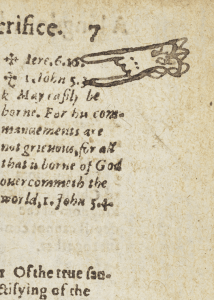 crifice. 7
✠ Iere. 6.16.
✠ 1. Iohn 5.3.
k May easily be
borne. For his com-
mandements are
not grieuous, for all
that is borne of God
ouercommeth the
world, 1. Iohn 5.4.
Of the true san-
ctifying of the